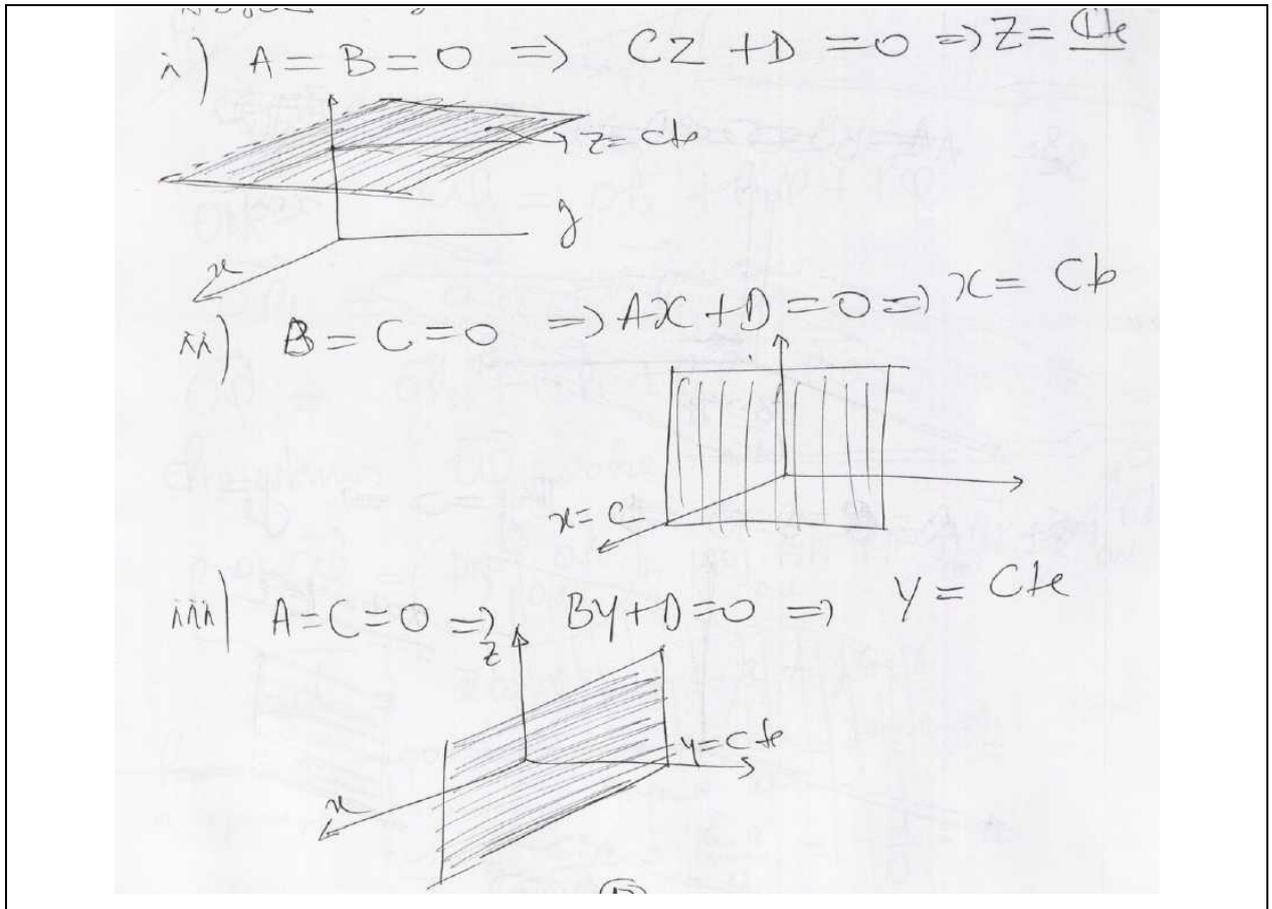 i) A = B = 0 => CZ + D = 0 => Z = Cte
z = cte
y
x
ii) B = C = 0 => AX + D = 0 => x = Cte
x = c
iii) A = C = 0 => BY + D = 0 => Y = Cte
z
y = cte
x